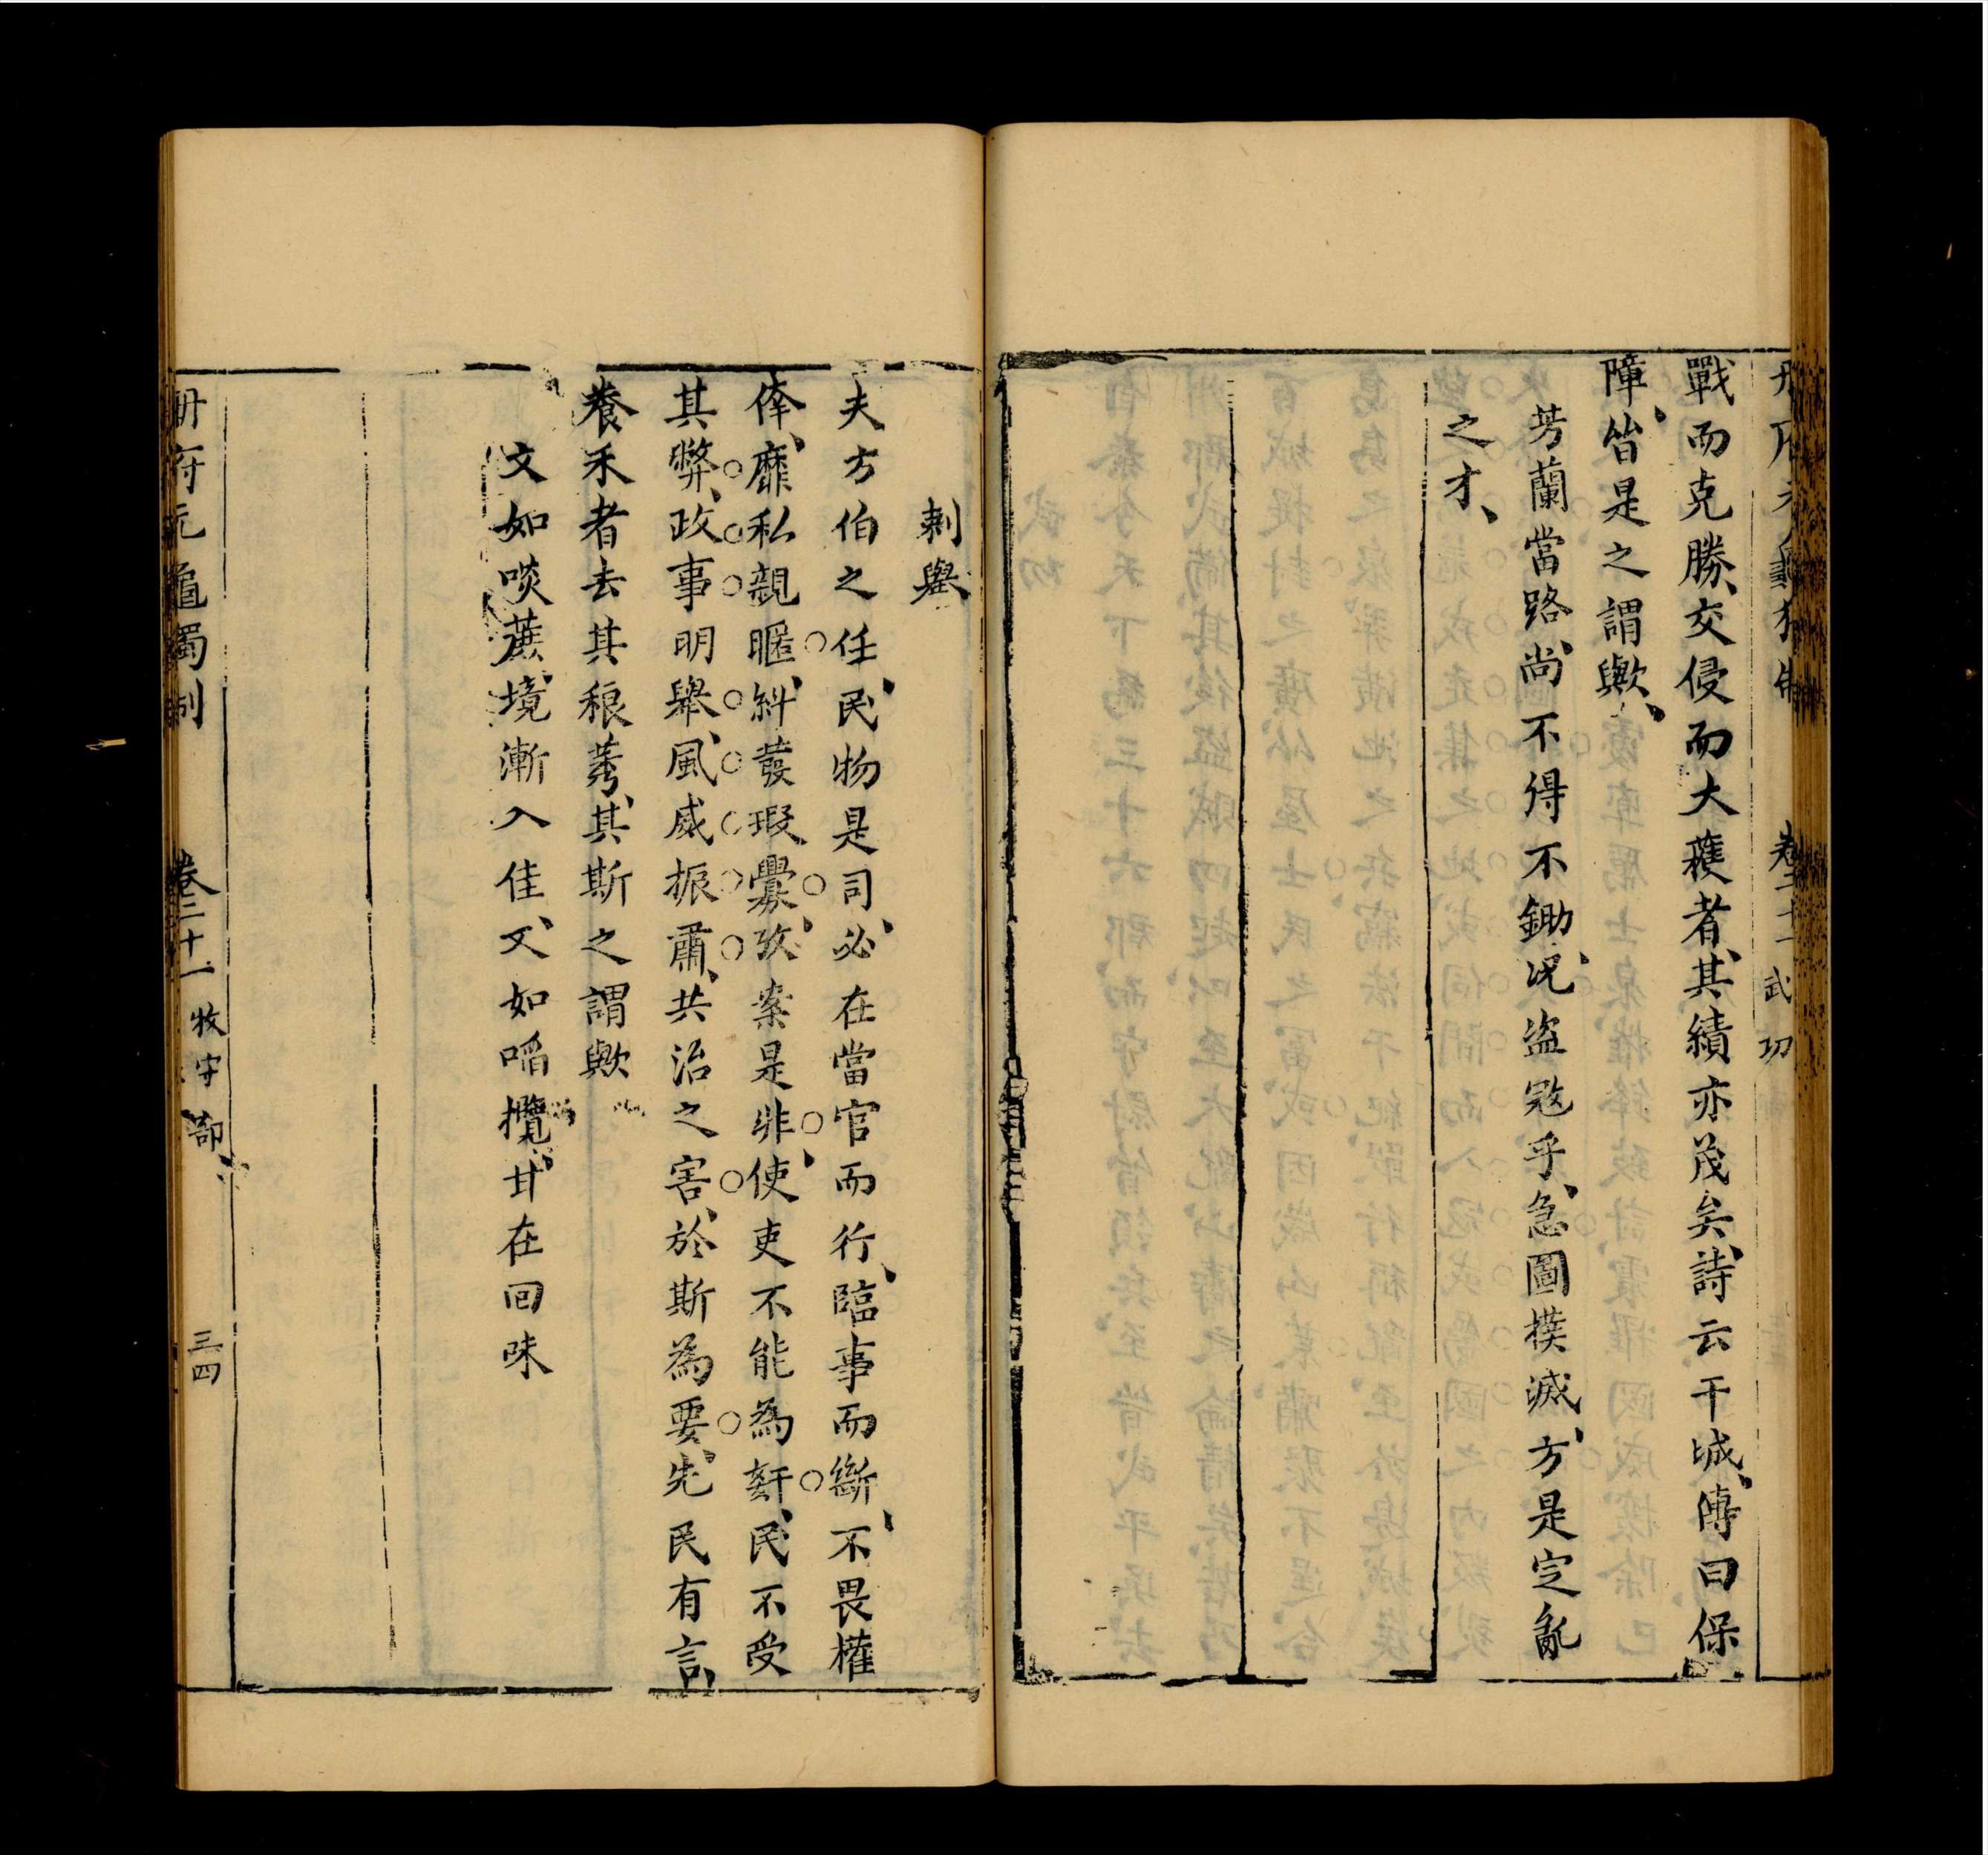 卷二十一 武功
戰而克勝、交侵而大穫者、其績亦茂矣、詩云干城、傳曰保
障、皆是之謂歟、
芳蘭當路、尚不得不鋤、况盜寇乎、急圖撲滅、方是定亂
之才、
刺舉
夫方伯之任、民物是司、必在當官而行、臨事而斷、不畏權
倖、靡私親暱、糾發瑕釁、攷案是非、使吏不能為姧、民不受
其弊、政事明舉、風威振肅、共治之害、於斯為要、先民有言、
養禾者去其稂莠、其斯之謂歟
文如啖蔗、境漸入佳、又如㗖欖、甘在回味
冊府元龜獨制 卷二十一 牧守部 三四